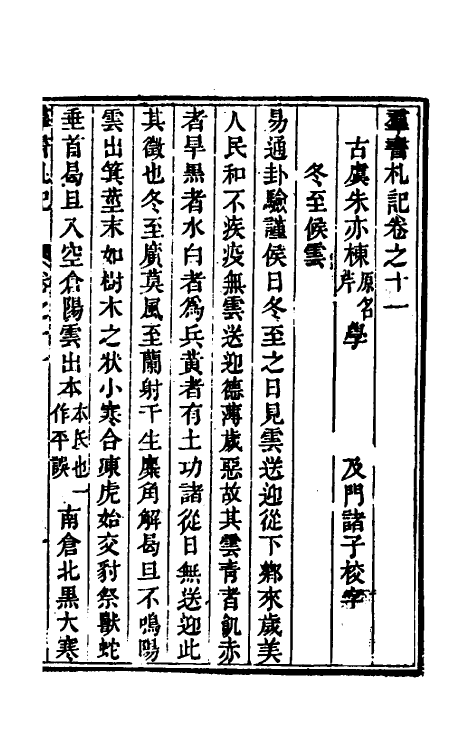 羣書札記卷之十一
古虞朱亦棟原名芹學 及門諸子校字
冬至候雲
易通卦驗謹候日冬至之日見雲送迎從下鄉來歲美
人民和不疾疫無雲送迎德薄歲惡故其雲青者飢赤
者旱黑者水白者為兵黃者有土功諸從日無送迎此
其徵也冬至廣莫風至蘭射干生麋角解曷旦不鳴陽
雲出箕莖末如樹木之狀小寒合凍虎始交豺祭獸蛇
垂首曷且入空倉陽雲出本本氐也一作平誤南倉北黑大寒
羣書札記 卷之十一